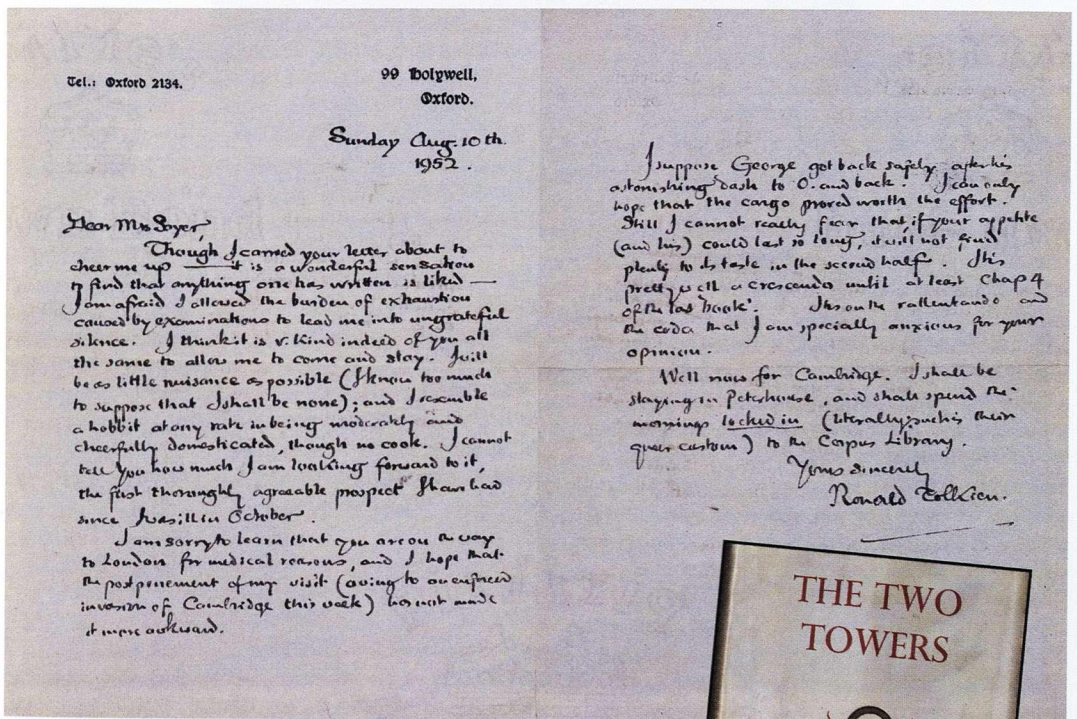 Tel.: Oxford 2134.
99 Holywell,
Oxford.
Sunday Aug. 10th.
1952.
Dear Mrs Sayer,
Though I carried your letter about to
cheer me up — it is a wonderful sensation
to find that anything one has written is liked —
I am afraid I allowed the burden of exhaustion
caused by examinations to lead me into ungrateful
silence. I think it is v. kind indeed of you all
the same to allow me to come and stay. I will
be as little nuisance as possible (I know too much
to suppose that I shall be none); and I resemble
a hobbit at any rate in being moderately and
cheerfully domesticated, though no cook. I cannot
tell you how much I am looking forward to it,
the first thoroughly agreeable prospect I have had
since I was ill in October.
I am sorry to learn that you are on the way
to London for medical reasons, and I hope that
the postponement of my visit (owing to an enforced
invasion of Cambridge this week) has not made
it more awkward.
I suppose George got back safely after his
astonishing dash to O. and back. I can only
hope that the cargo proved worth the effort.
Still I cannot really fear that, if your appetite
(and his) could last so long, it will not find
plenty to its taste in the second half. It is
pretty well a crescendo until at least Chap 4
of the last 'book'. It is on the rallentando and
the coda that I am specially anxious for your
opinion.
Well now for Cambridge. I shall be
staying in Peterhouse, and shall spend the
mornings locked in (literally: such is their
queer custom) to the Corpus Library.
Yours sincerely
Ronald Tolkien.
THE TWO
TOWERS